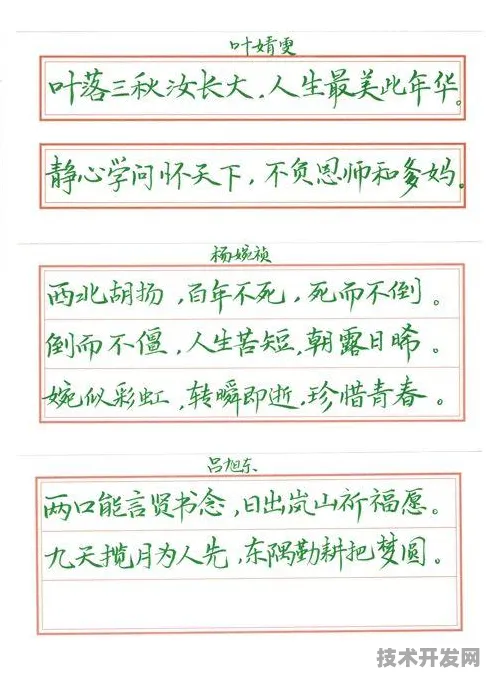 叶婧雯
叶落三秋汝长大，人生最美此年华。
静心学问怀天下，不负恩师和爹妈。
杨婉祯
西北胡扬，百年不死，死而不倒。
倒而不僵，人生苦短，朝露日晞。
婉似彩虹，转瞬即逝，珍惜青春。
吕旭东
两口能言贤书念，日出岚山祈福愿。
九天揽月为人先，东隅勤耕把梦圆。
技术开发网